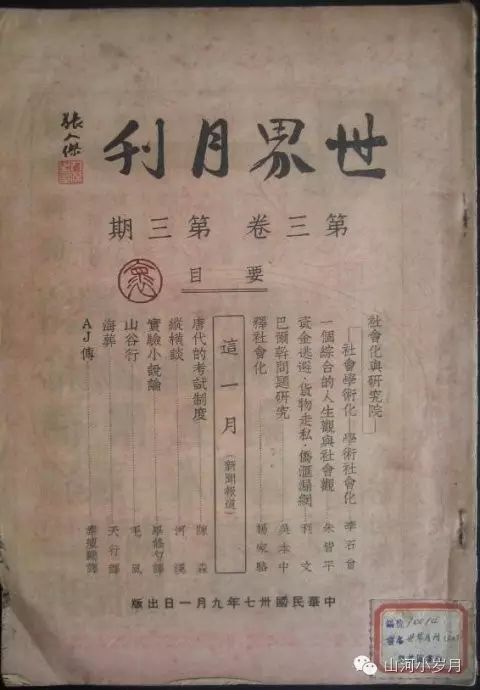 世界月刊
張人傑
第三卷 第三期
要目
社會化與研究院
社會學術化 學術社會化 李石曾
一個綜合的人生觀與社會觀 朱皆平
資金逃避・貨物走私・僑滙漏網 利文
巴爾幹問題研究 吳本中
釋社會化 楊家駱
這一月(新聞報道)
唐代的考試制度 陳森
縱橫談 河漢
實驗小說論 畢修勺譯
山谷行 毛風
海葬 天行譯
AJ傳
中華民國卅七年九月一日出版
編號
書名 世界月刊
山河小岁月